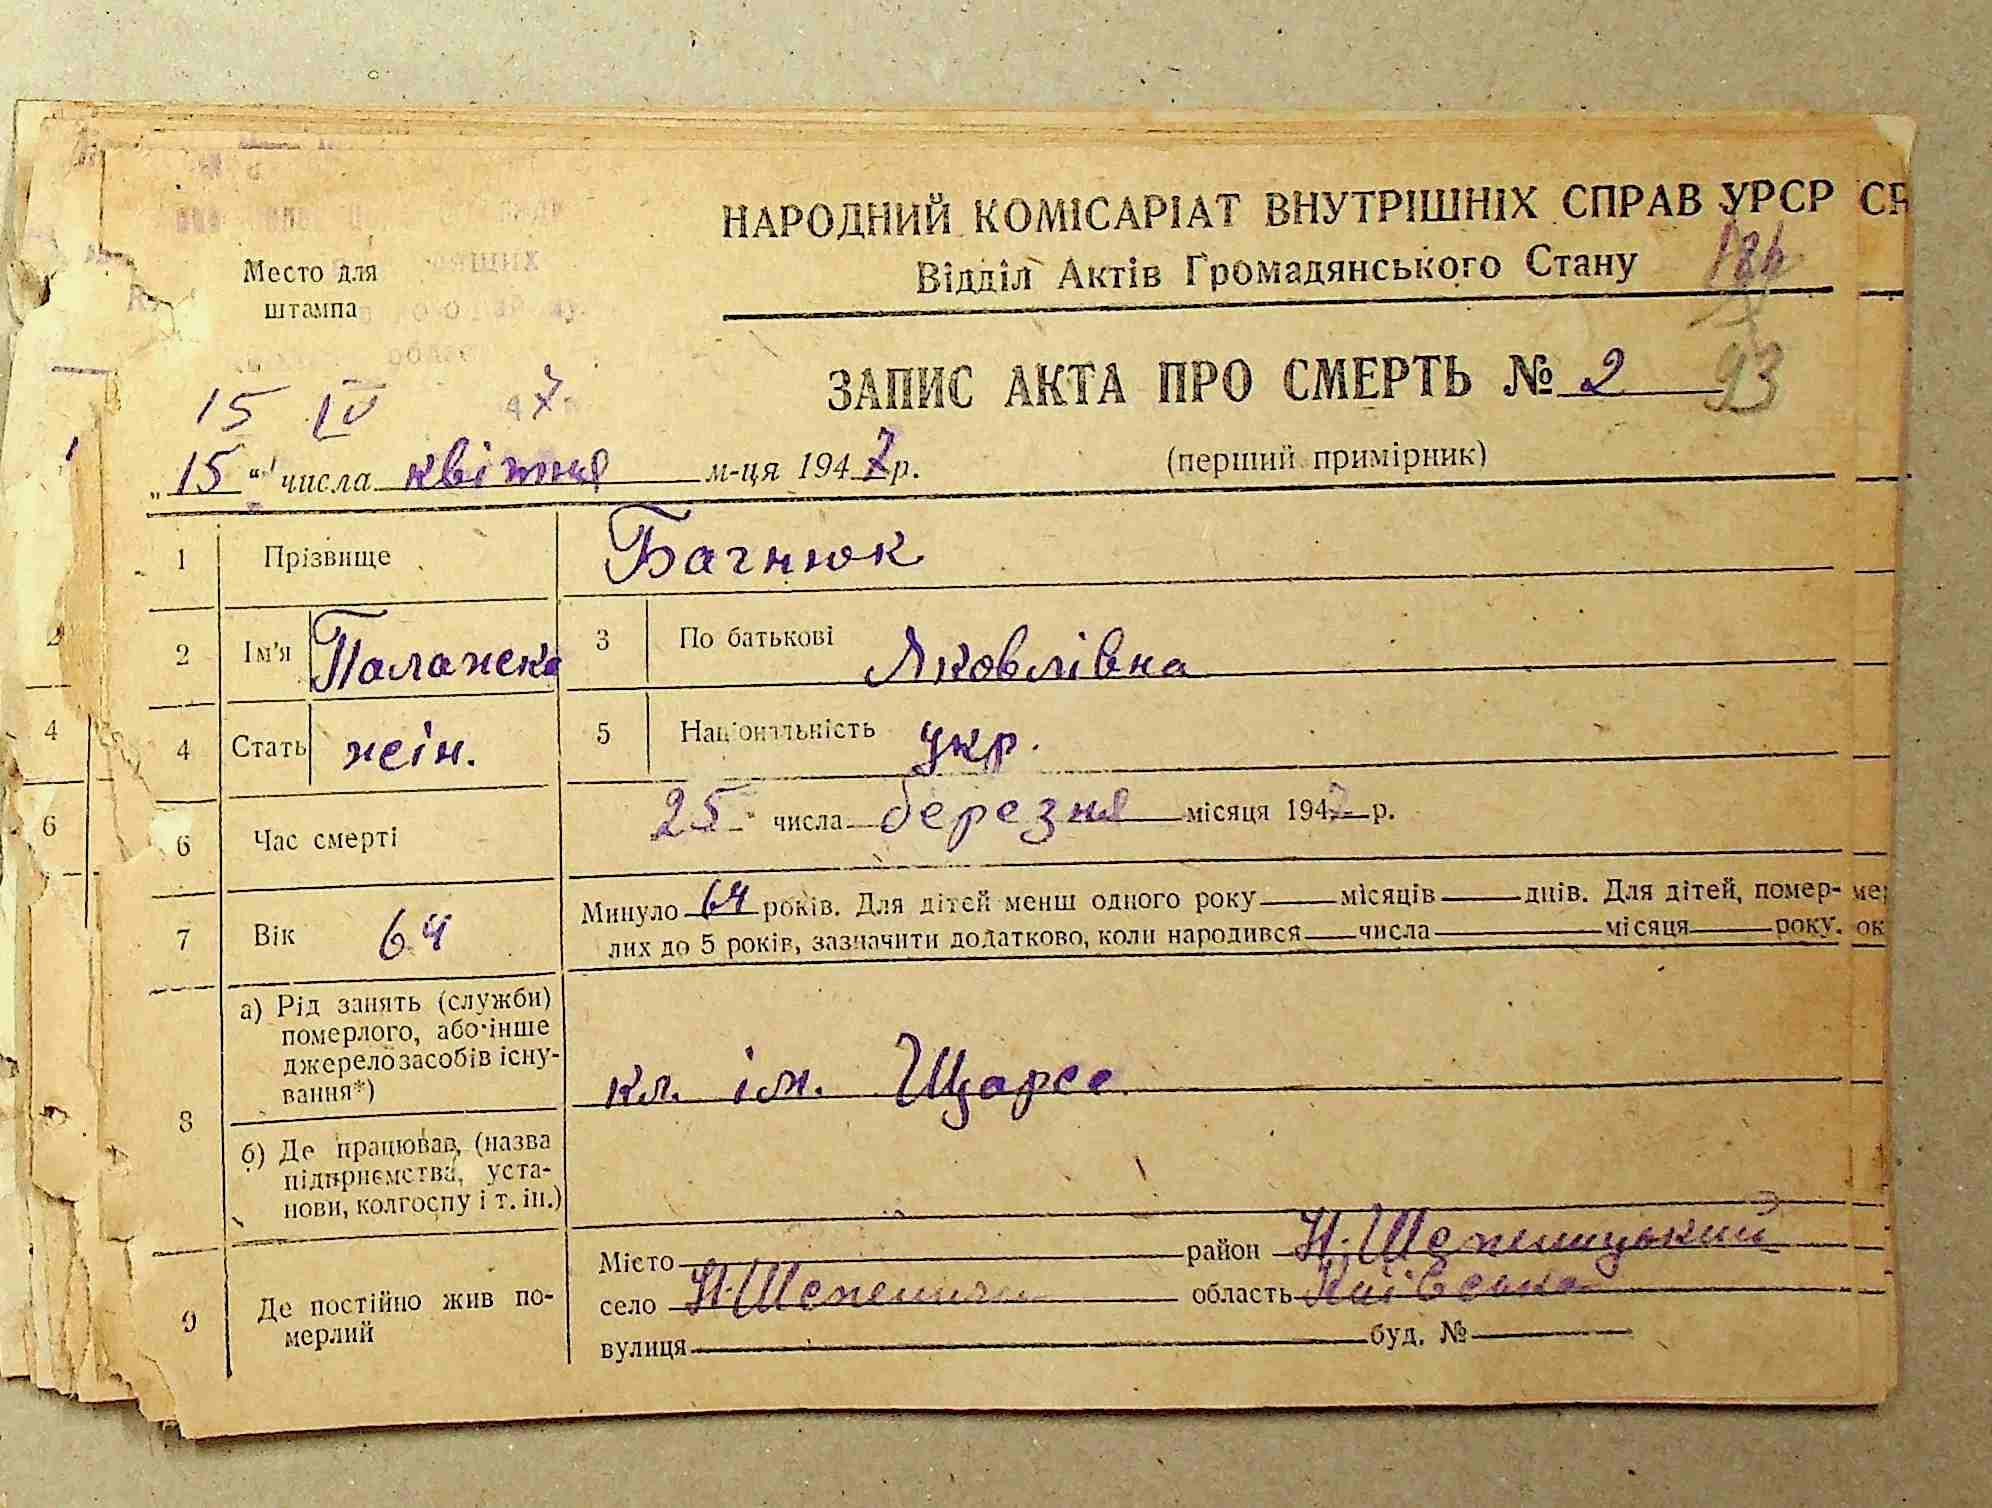 НАРОДНИЙ КОМІСАРІАТ ВНУТРІШНІХ СПРАВ УРСР
Відділ Актів Громадянського Стану
Место для
штампа
ЗАПИС АКТА ПРО СМЕРТЬ № 2
93
15 IV 47
„15“ числа квітня м-ця 1947 р.
(перший примірник)
1 Прізвище Багнюк
2 Ім'я Палажка 3 По батькові Яковлівна
4 Стать жін. 5 Національність укр.
6 Час смерті 25 числа березня місяця 1947 р.
7 Вік 64 Минуло 64 років. Для дітей менш одного року місяців днів. Для дітей, помер-
лих до 5 років, зазначити додатково, коли народився числа місяця року.
8 а) Рід занять (служби)
померлого, або інше
джерело засобів існу-
вання*)
кл. ім. Щорса
б) Де працював, (назва
підприємства, уста-
нови, колгоспу і т. ін.)
9 Де постійно жив по-
мерлий
Місто район Н. Шепелицький
село Н. Шепеличи область Київська
вулиця буд. №